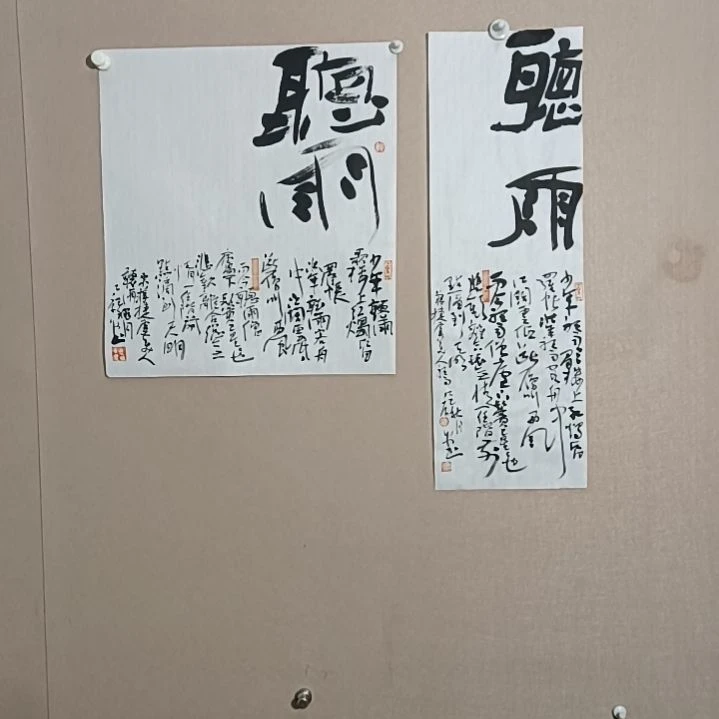 聽雨
少年聽雨
歌樓上紅燭昏
羅帳
壯年聽雨客舟
中江闊雲低
斷雁叫西風
而今聽雨僧
廬下鬢已星星也
悲歡離合總无
情一任階前
點滴到天明
宋蔣捷虞美人
聽雨
聽雨
少年聽雨歌樓上紅燭昏
羅帳壯年聽雨客舟中
江闊雲低斷雁叫西風
而今聽雨僧廬下鬢已星星也
悲歡離合總无情一任階前
點滴到天明
蔣捷虞美人